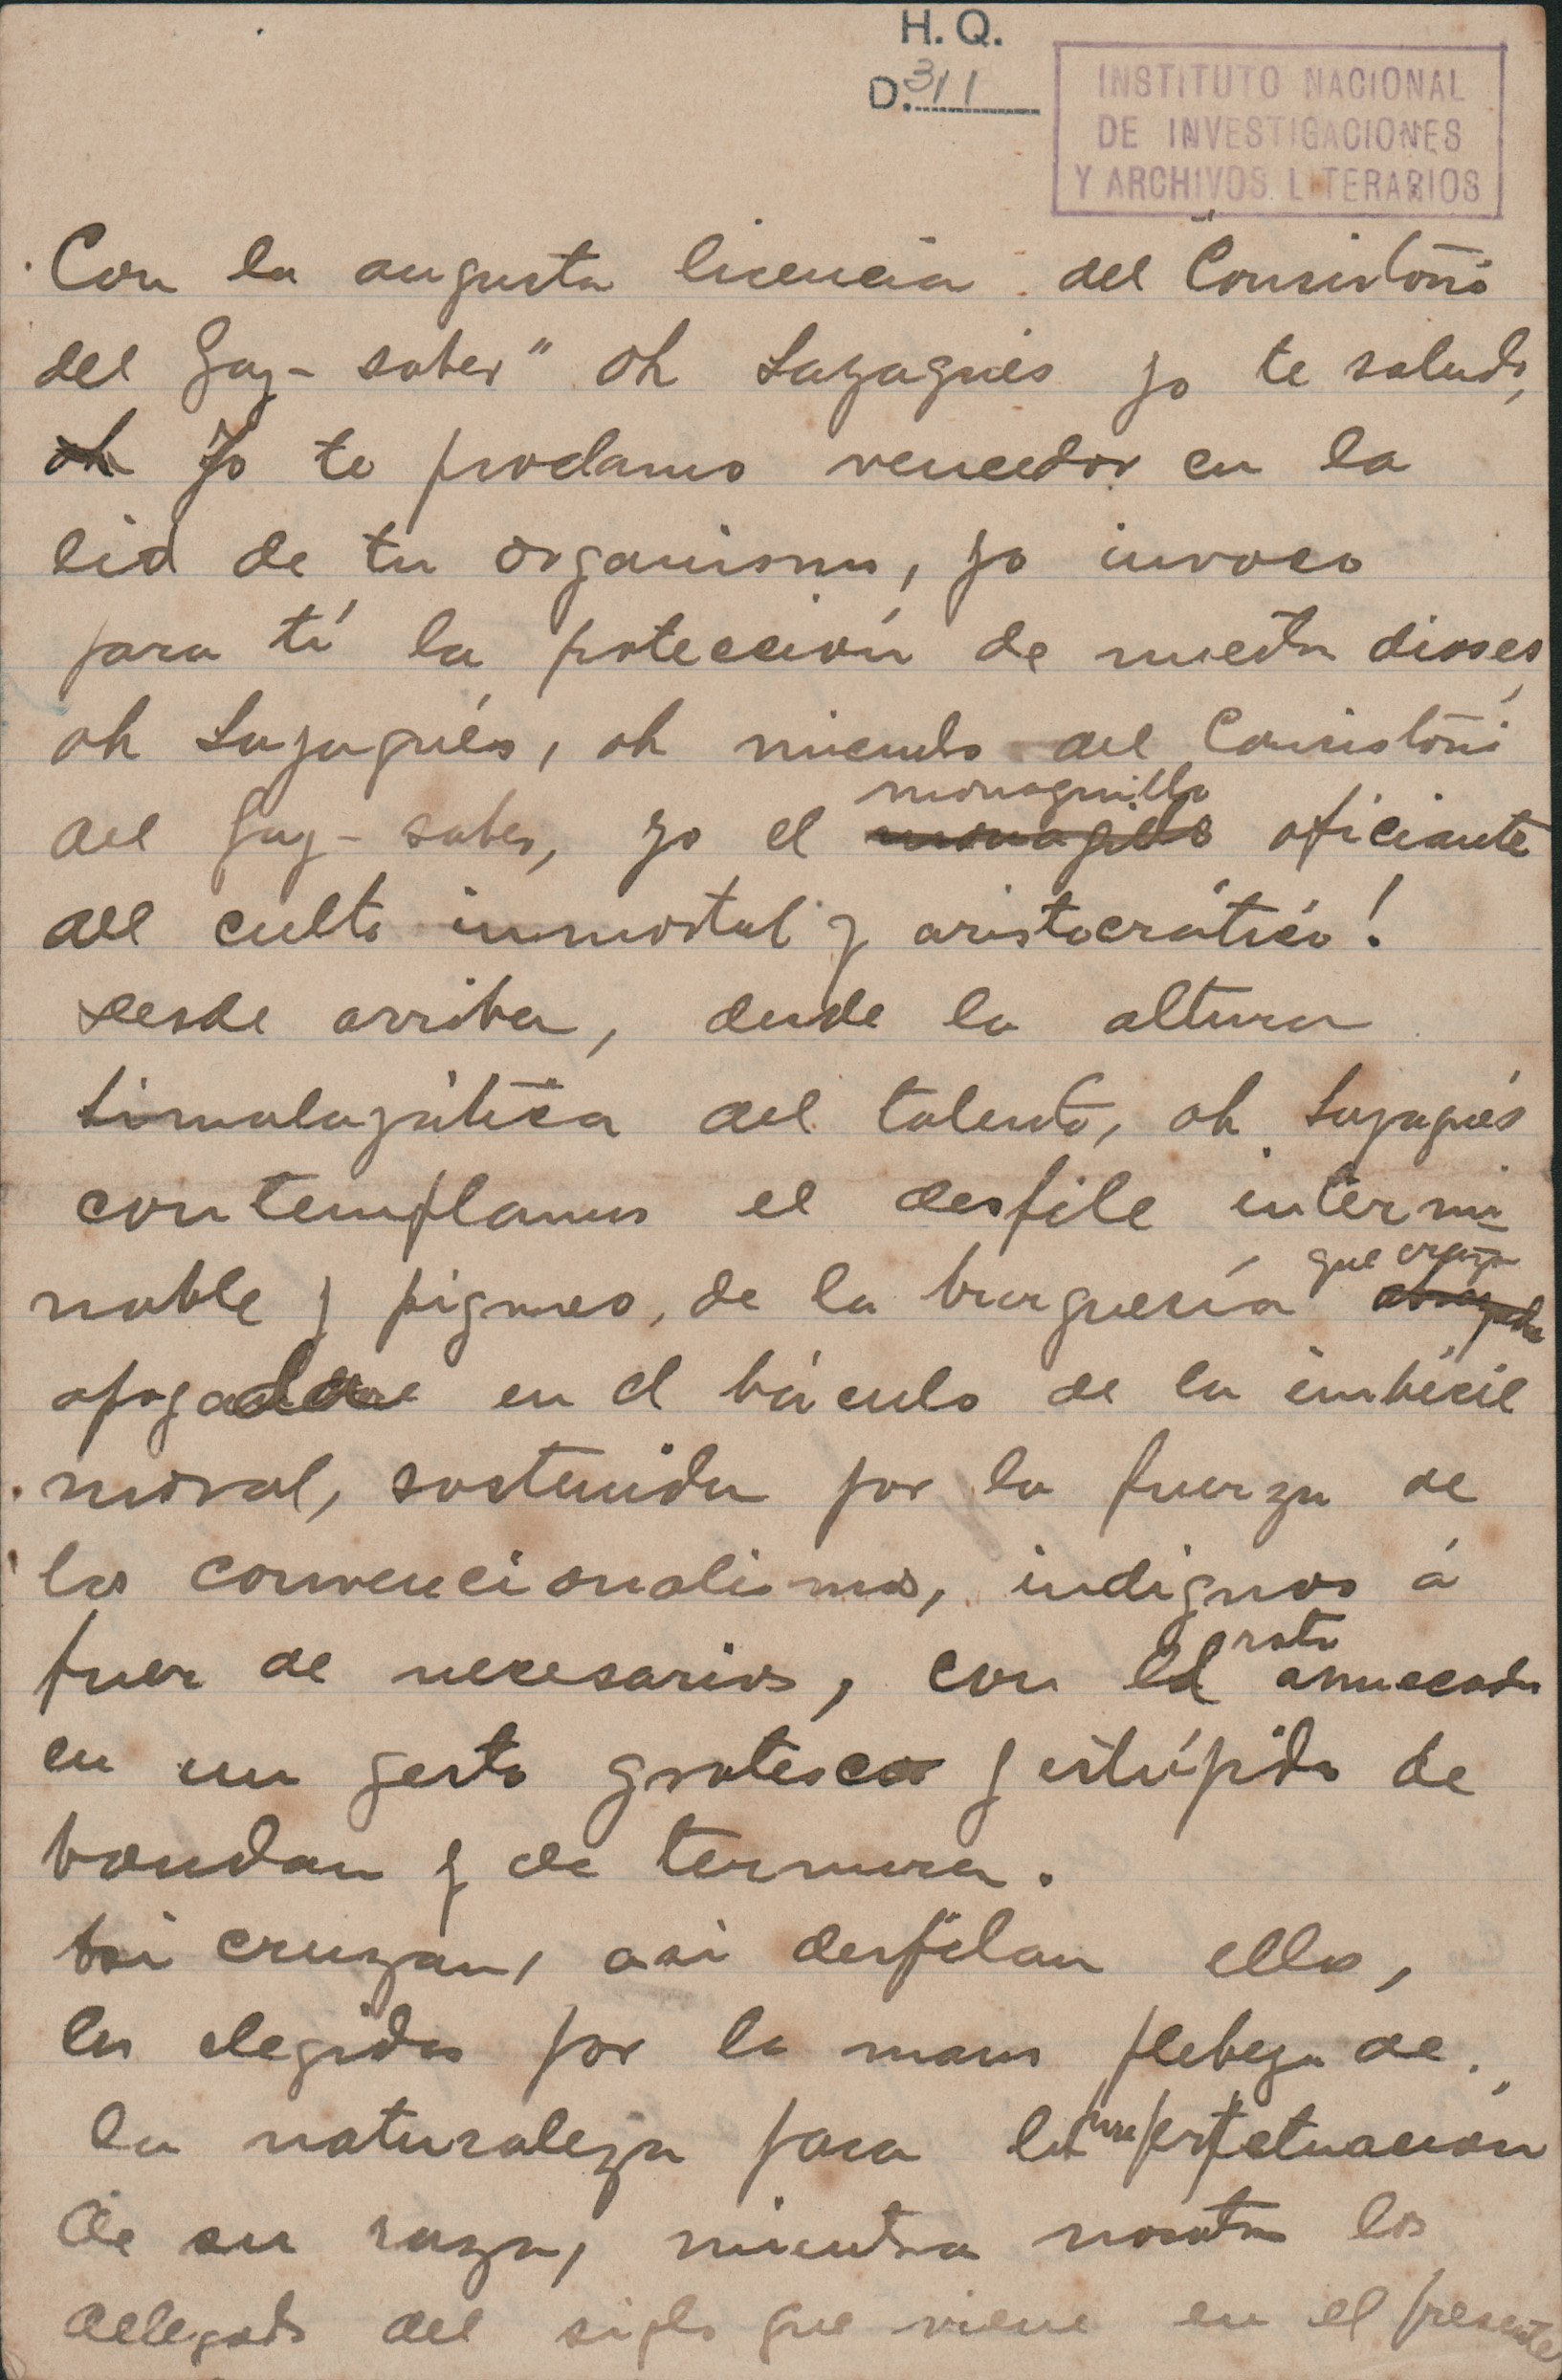 H. Q.
D. 311
INSTITUTO NACIONAL
DE INVESTIGACIONES
Y ARCHIVOS LITERARIOS
Con la augusta licencia del "Consistorio
del Gay-saber" oh Sayagués yo te saludo,
oh Yo te proclamo vencedor en la
lid de tu organismo, yo invoco
para tí la protección de nuestros dioses,
oh Sayagués, oh miembro del Consistorio
del Gay-saber, yo el monaguillo oficiante
del culto inmortal y aristocrático!
desde arriba, desde la altura
himalayática del talento, oh Sayagués
contemplamos el desfile intermi-
nable y pigmeo, de la burguesía que cruza
apoyada en el báculo de la imbécil
moral, sostenida por la fuerza de
los convencionalismos, indignos á
fuer de necesarios, con el amuecado
en un gesto grotesco y estúpido de
bondad y de ternura.
Así cruzan, asi desfilan ellos,
los elegidos por la mano plebeya de
la naturaleza para la perpetuación
de su raza, mientras nosotros los
delegados del siglo que viene en el presente